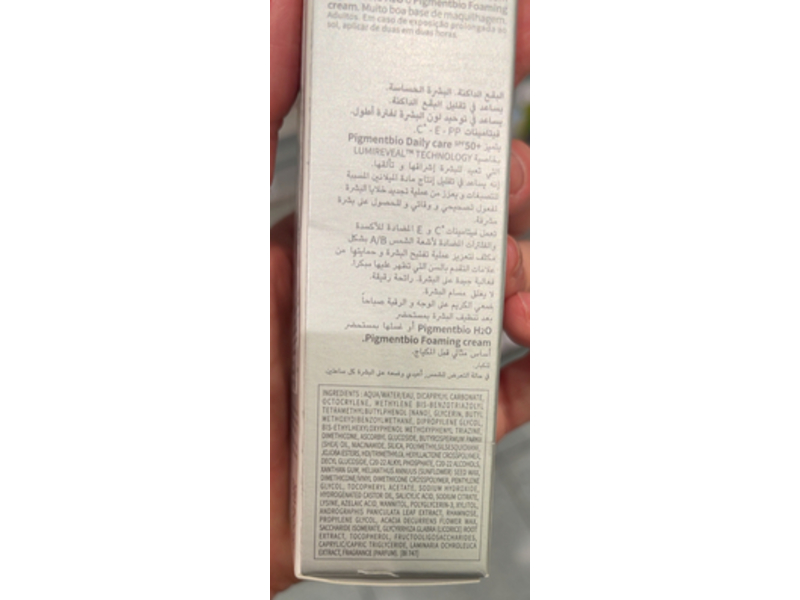 H2O e Pigmentbio Foaming
cream. Muito boa base de maquilhagem.
Adultos. Em caso de exposição prolongada ao
sol, aplicar de duas em duas horas.
البقع الداكنة. البشرة الحساسة.
يساعد في تقليل البقع الداكنة.
يساعد في توحيد لون البشرة لفترة أطول.
فيتامينات C* - E - PP.
يتميز Pigmentbio Daily care SPF50+
بخاصية LUMIREVEAL™ TECHNOLOGY
التي تعيد للبشرة إشراقها و تألقها.
إنه يساعد في تقليل إنتاج مادة الميلانين المسببة
للتصبغات و يعزز من عملية تجديد خلايا البشرة
لمفعول تصحيحي و وقائي و للحصول على بشرة
مشرقة.
تعمل فيتامينات C* و E المضادة للأكسدة
والفلترات المضادة لأشعة الشمس A/B بشكل
مكثف لتعزيز عملية تفتيح البشرة و حمايتها من
علامات التقدم بالسن التي تظهر عليها مبكرا.
فعالية جيدة على البشرة. رائحة رقيقة.
لا يغلق مسام البشرة.
ضعي الكريم على الوجه و الرقبة صباحاً
بعد تنظيف البشرة بمستحضر
Pigmentbio H2O أو غسلها بمستحضر
Pigmentbio Foaming cream.
أساس مثالي قبل المكياج.
للكبار.
في حالة التعرض للشمس, أعيدي وضعه على البشرة كل ساعتين.
INGREDIENTS : AQUA/WATER/EAU, DICAPRYLYL CARBONATE,
OCTOCRYLENE, METHYLENE BIS-BENZOTRIAZOLYL
TETRAMETHYLBUTYLPHENOL [NANO], GLYCERIN, BUTYL
METHOXYDIBENZOYLMETHANE, DIPROPYLENE GLYCOL,
BIS-ETHYLHEXYLOXYPHENOL METHOXYPHENYL TRIAZINE,
DIMETHICONE, ASCORBYL GLUCOSIDE, BUTYROSPERMUM PARKII
(SHEA) OIL, NIACINAMIDE, SILICA, POLYMETHYLSILSESQUIOXANE,
JOJOBA ESTERS, HDI/TRIMETHYLOL HEXYLLACTONE CROSSPOLYMER,
DECYL GLUCOSIDE, C20-22 ALKYL PHOSPHATE, C20-22 ALCOHOLS,
XANTHAN GUM, HELIANTHUS ANNUUS (SUNFLOWER) SEED WAX,
DIMETHICONE/VINYL DIMETHICONE CROSSPOLYMER, PENTYLENE
GLYCOL, TOCOPHERYL ACETATE, SODIUM HYDROXIDE,
HYDROGENATED CASTOR OIL, SALICYLIC ACID, SODIUM CITRATE,
LYSINE, AZELAIC ACID, MANNITOL, POLYGLYCERIN-3, XYLITOL,
ANDROGRAPHIS PANICULATA LEAF EXTRACT, RHAMNOSE,
PROPYLENE GLYCOL, ACACIA DECURRENS FLOWER WAX,
SACCHARIDE ISOMERATE, GLYCYRRHIZA GLABRA (LICORICE) ROOT
EXTRACT, TOCOPHEROL, FRUCTOOLIGOSACCHARIDES,
CAPRYLIC/CAPRIC TRIGLYCERIDE, LAMINARIA OCHROLEUCA
EXTRACT, FRAGRANCE (PARFUM). [BI 747]